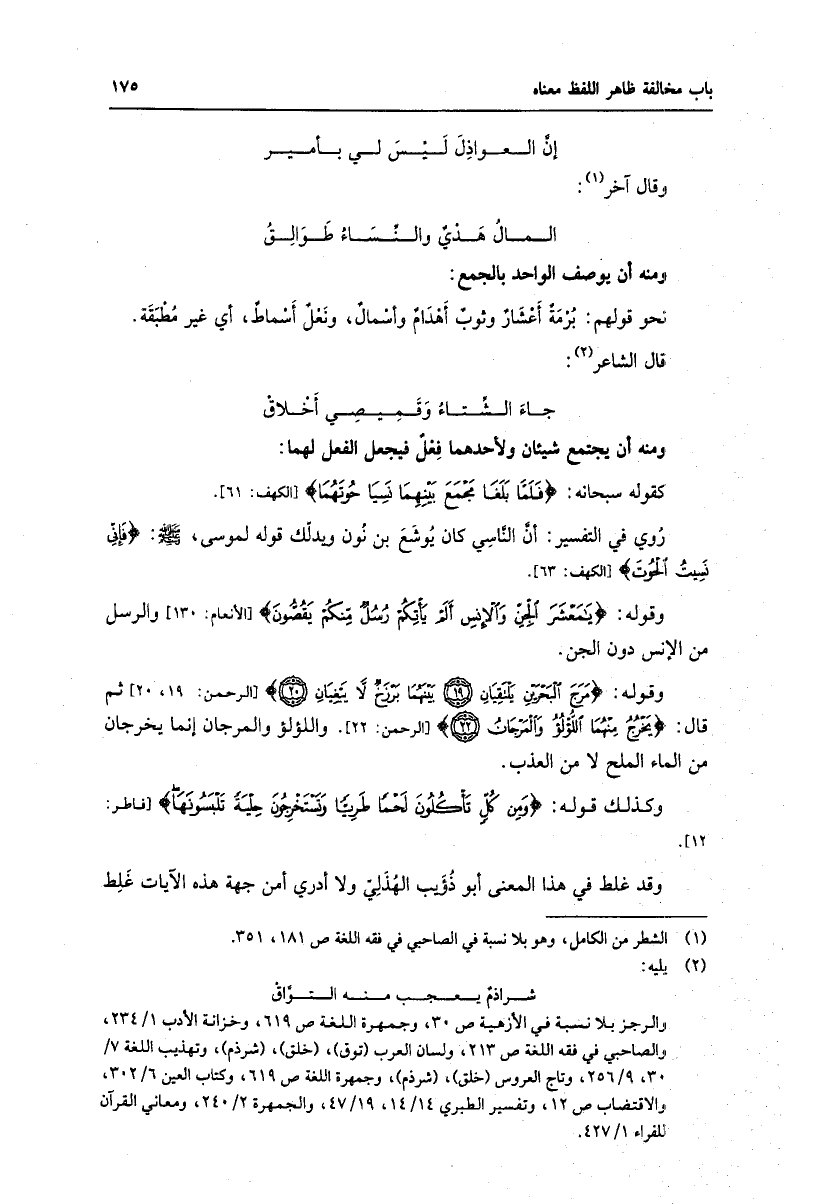 باب مخالفة ظاهر اللفظ معناه ١٧٥
إنَّ الـعـواذِلَ لَـيْـسَ لـي بـأمـيـر
وقال آخر(١):
الـمـالُ هَـدْيٌ والـنِّـسَـاءُ طَـوَالِـقُ
ومنه أن يوصف الواحد بالجمع:
نحو قولهم: بُرْمَةٌ أَعْشَارٌ وثوبٌ أَهْدَامٌ وأسْمالٌ، ونَعْلٌ أَسْماطٌ، أي غير مُطْبَقَة.
قال الشاعر(٢):
جـاءَ الـشِّـتـاءُ وَقَـمِـيـصِـي أَخْـلاقْ
ومنه أن يجتمع شيئان ولأحدهما فِعْلٌ فيجعل الفعل لهما:
كقوله سبحانه: ﴿فَلَمَّا بَلَغَا مَجْمَعَ بَيْنِهِمَا نَسِيَا حُوتَهُمَا﴾ [الكهف: ٦١].
رُوي في التفسير: أنَّ النَّاسِي كان يُوشَعَ بن نُون ويدلّك قوله لموسى، ﷺ: ﴿فَإِنِّي
نَسِيتُ ٱلْحُوتَ﴾ [الكهف: ٦٣].
وقوله: ﴿يَٰمَعْشَرَ ٱلْجِنِّ وَٱلْإِنسِ أَلَمْ يَأْتِكُمْ رُسُلٌ مِّنكُمْ يَقُصُّونَ﴾ [الأنعام: ١٣٠] والرسل
من الإنس دون الجن.
وقوله: ﴿مَرَجَ ٱلْبَحْرَيْنِ يَلْتَقِيَانِ ۝١٩ بَيْنَهُمَا بَرْزَخٌ لَّا يَبْغِيَانِ ۝٢٠﴾ [الرحمن: ١٩، ٢٠] ثم
قال: ﴿يَخْرُجُ مِنْهُمَا ٱللُّؤْلُؤُ وَٱلْمَرْجَانُ ۝٢٢﴾ [الرحمن: ٢٢]. واللؤلؤ والمرجان إنما يخرجان
من الماء الملح لا من العذب.
وكذلك قوله: ﴿وَمِن كُلٍّ تَأْكُلُونَ لَحْمًا طَرِيًّا وَتَسْتَخْرِجُونَ حِلْيَةً تَلْبَسُونَهَا ۖ﴾ [فاطر:
١٢].
وقد غلط في هذا المعنى أبو ذُؤَيب الهُذَلِيّ ولا أدري أمن جهة هذه الآيات غَلِط
(١) الشطر من الكامل، وهو بلا نسبة في الصاحبي في فقه اللغة ص ١٨١، ٣٥١.
(٢) يليه:
شـراذمُ يـعـجـب مـنـه الـتـوَّاقْ
والرجز بلا نسبة في الأزهية ص ٣٠، وجمهرة اللغة ص ٦١٩، وخزانة الأدب ١/ ٢٣٤،
والصاحبي في فقه اللغة ص ٢١٣، ولسان العرب (توق)، (خلق)، (شرذم)، وتهذيب اللغة ٧/
٣٠، ٩/ ٢٥٦، وتاج العروس (خلق)، (شرذم)، وجمهرة اللغة ص ٦١٩، وكتاب العين ٦/ ٣٠٢،
والاقتضاب ص ١٢، وتفسير الطبري ١٤/ ١٤، ١٩/ ٤٧، والجمهرة ٢/ ٢٤٠، ومعاني القرآن
للفراء ١/ ٤٢٧.